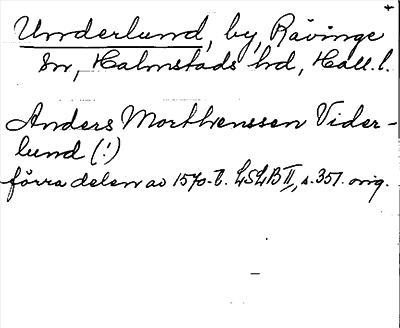 Underlund, by, Rävinge
sn, Halmstads hd, Hall.l.
Anders Morthenssen Vider-
lund (!)
förra delen av 1570-t. LSLB II, s. 351. orig.